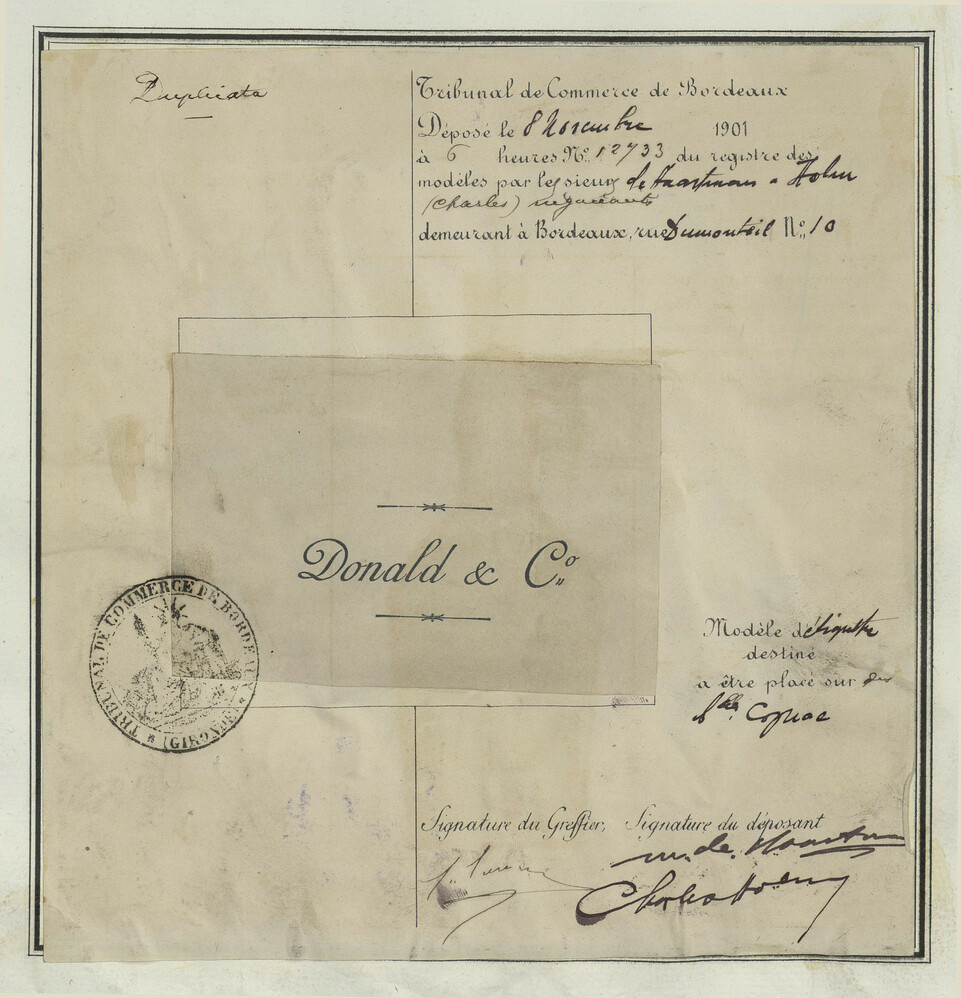 Duplicata
Tribunal de Commerce de Bordeaux
Déposé le 8 Novembre 1901
à 6 heures Nº 12733 du registre des
modèles par les sieurs de
(Charles) négociants
demeurant à Bordeaux, rue Dumonteil Nº 10
Donald & Cº
TRIBUNAL DE COMMERCE DE BORDEAUX
* (GIRONDE) *
Modèle d'étiquette
destiné
a être placé sur des
blles Cognac
Signature du Greffier, Signature du déposant
m. de.
Charles